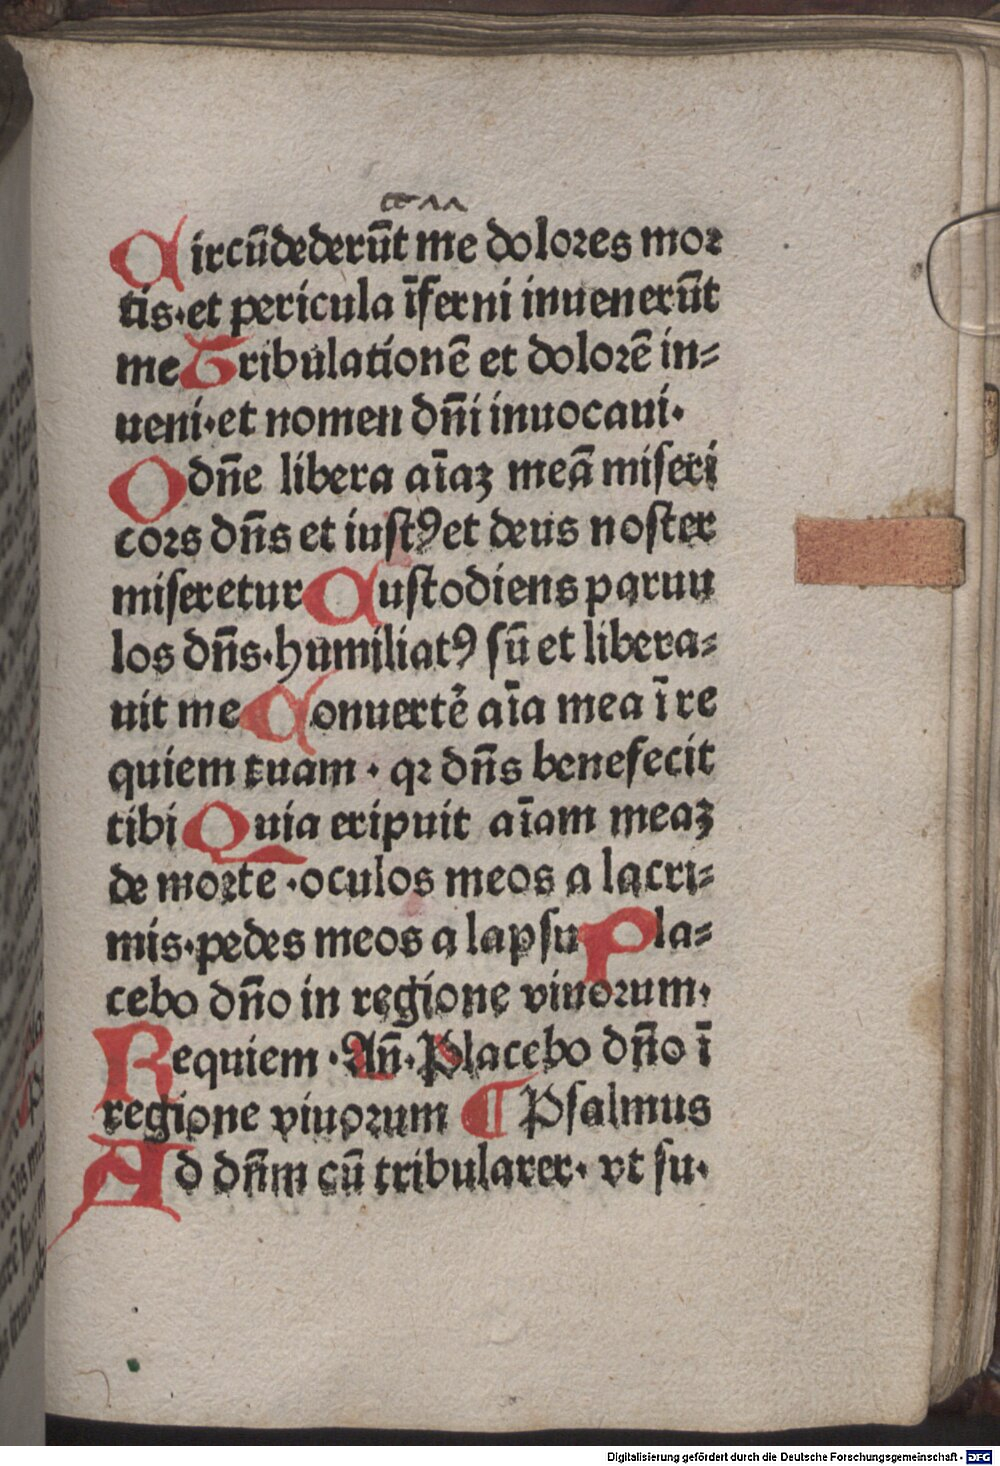 Circūdederūt me dolores mor
tis·et pericula īferni inuenerūt
me Tribulationē et dolorē in⸗
ueni·et nomen dn̄i inuocaui·
O dn̄e libera aīaꝫ meā miseri
cors dn̄s et iustꝰ et deus noster
miseretur Custodiens paruu
los dn̄s·humiliatꝰ sū et libera⸗
uit me Conuertē aīa mea ī re
quiem tuam · qꝛ dn̄s benefecit
tibi Quia eripuit aīam meaꝫ
de morte ·oculos meos a lacri⸗
mis·pedes meos a lapsu Pla⸗
cebo dn̄o in regione viuorum·
Requiem · An̄·Placebo dn̄o ī
regione viuorum ¶ Psalmus
Ad dn̄m cū tribularer· vt su·
Digitalisierung gefördert durch die Deutsche Forschungsgemeinschaft - DFG